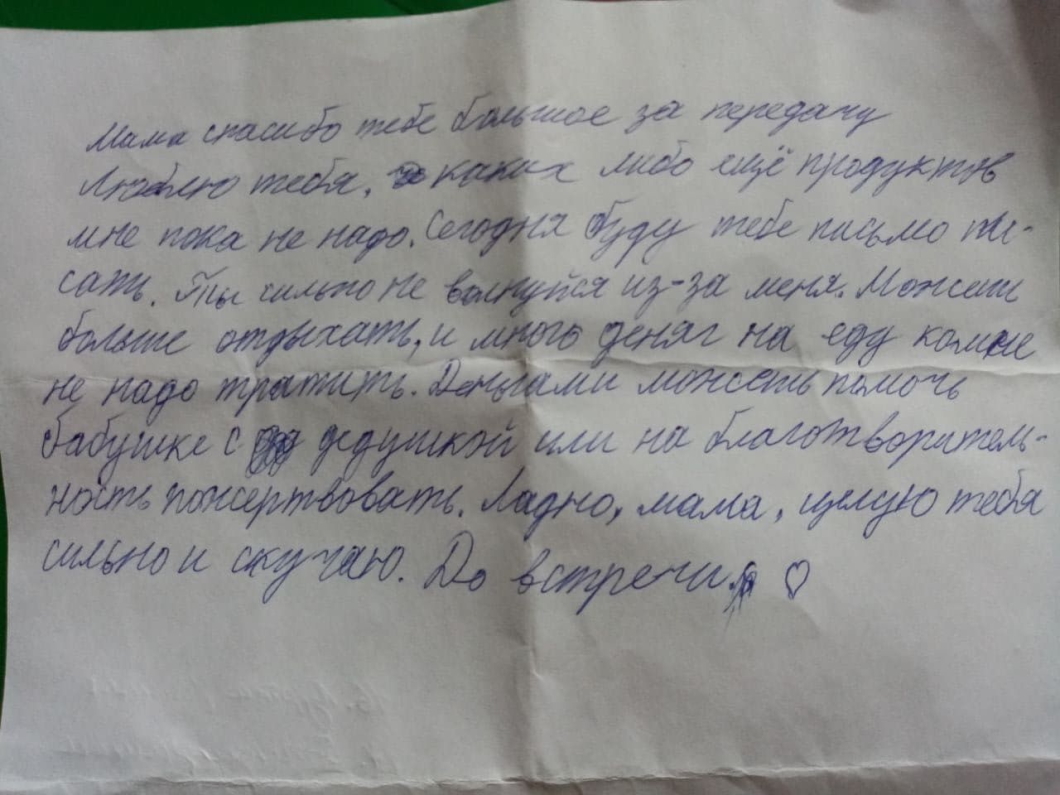 Мама спасибо тебе большое за передачу
Люблю тебя, каких либо ещё продуктов
мне пока не надо. Сегодня буду тебе письмо пи-
сать. Ты сильно не волнуйся из-за меня. Можешь
больше отдыхать, и много денег на еду ко мне
не надо тратить. Деньгами можешь помочь
бабушке с дедушкой или на благотворитель-
ность пожертвовать. Ладно, мама, целую тебя
сильно и скучаю. До встречи. ♡